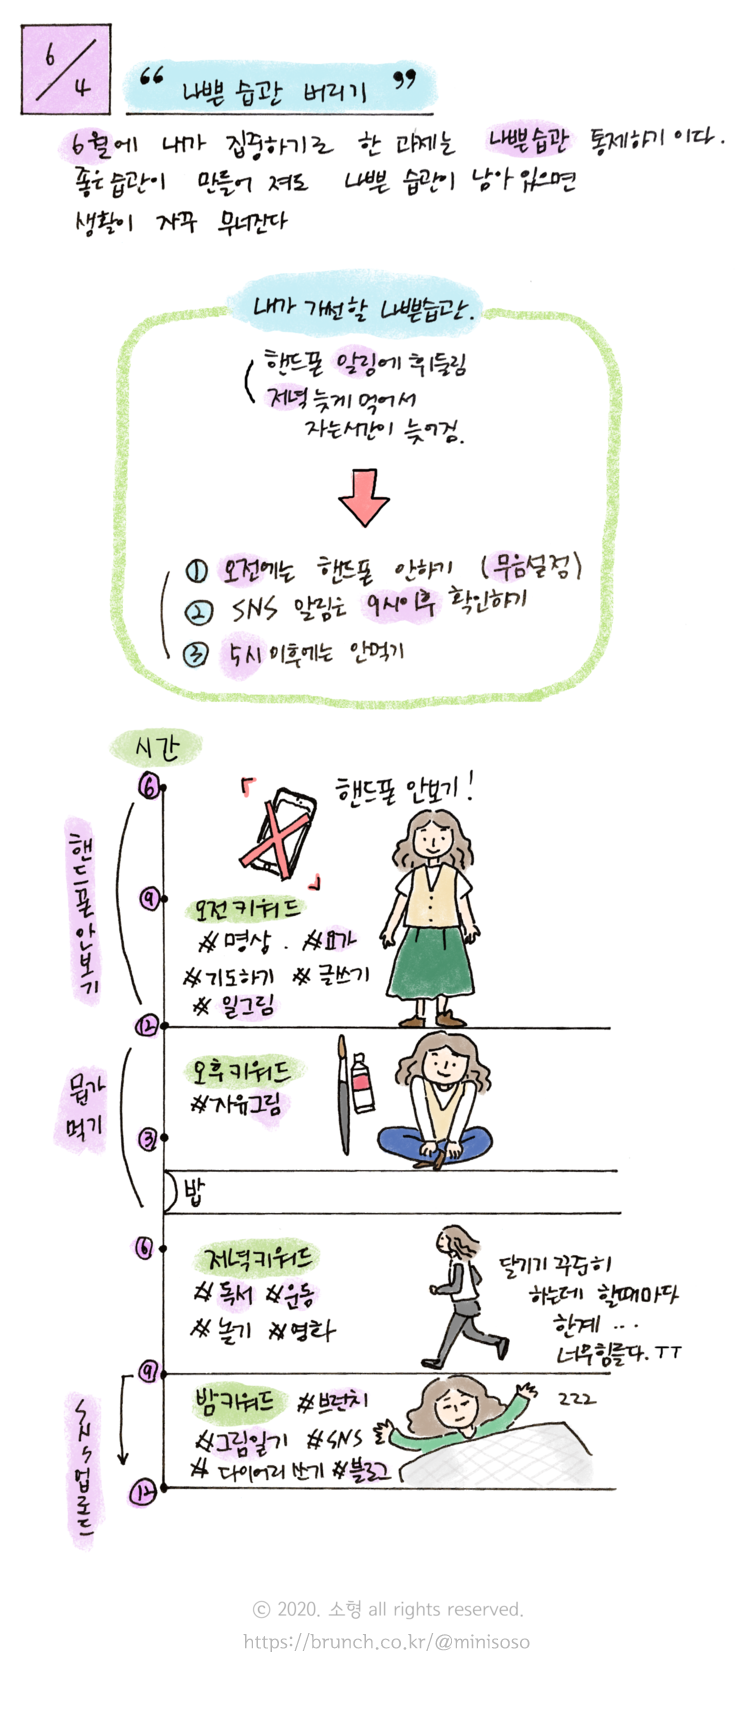 6/4
“ 나쁜 습관 버리기 ”
6월에 내가 집중하기로 한 과제는 나쁜습관 통제하기 이다.
좋은습관이 만들어 져도 나쁜 습관이 남아 있으면
생활이 자꾸 무너진다
내가 개선할 나쁜습관.
핸드폰 알림에 휘둘림
저녁 늦게 먹어서
자는시간이 늦어짐.
① 오전에는 핸드폰 안하기 (무음설정)
② SNS 알림은 9시이후 확인하기
③ 5시 이후에는 안먹기
시간
6
핸드폰 안보기!
핸드폰안보기
9
오전키워드
#명상. #요가
#기도하기 #글쓰기
# 일그림
12
오후키워드
#자유그림
뭔가
먹기
3
밥
6
저녁키워드
#독서 #운동
#놀기 #영화
달리기 꾸준히
하는데 할때마다
한계 ...
너무힘들다. ㅜㅜ
9
밤키워드 #브런치
#그림일기 #SNS
# 다이어리 쓰기 #블로그
zzz
SNS업로드
12
© 2020. 소형 all rights reserved.
https://brunch.co.kr/@minisoso